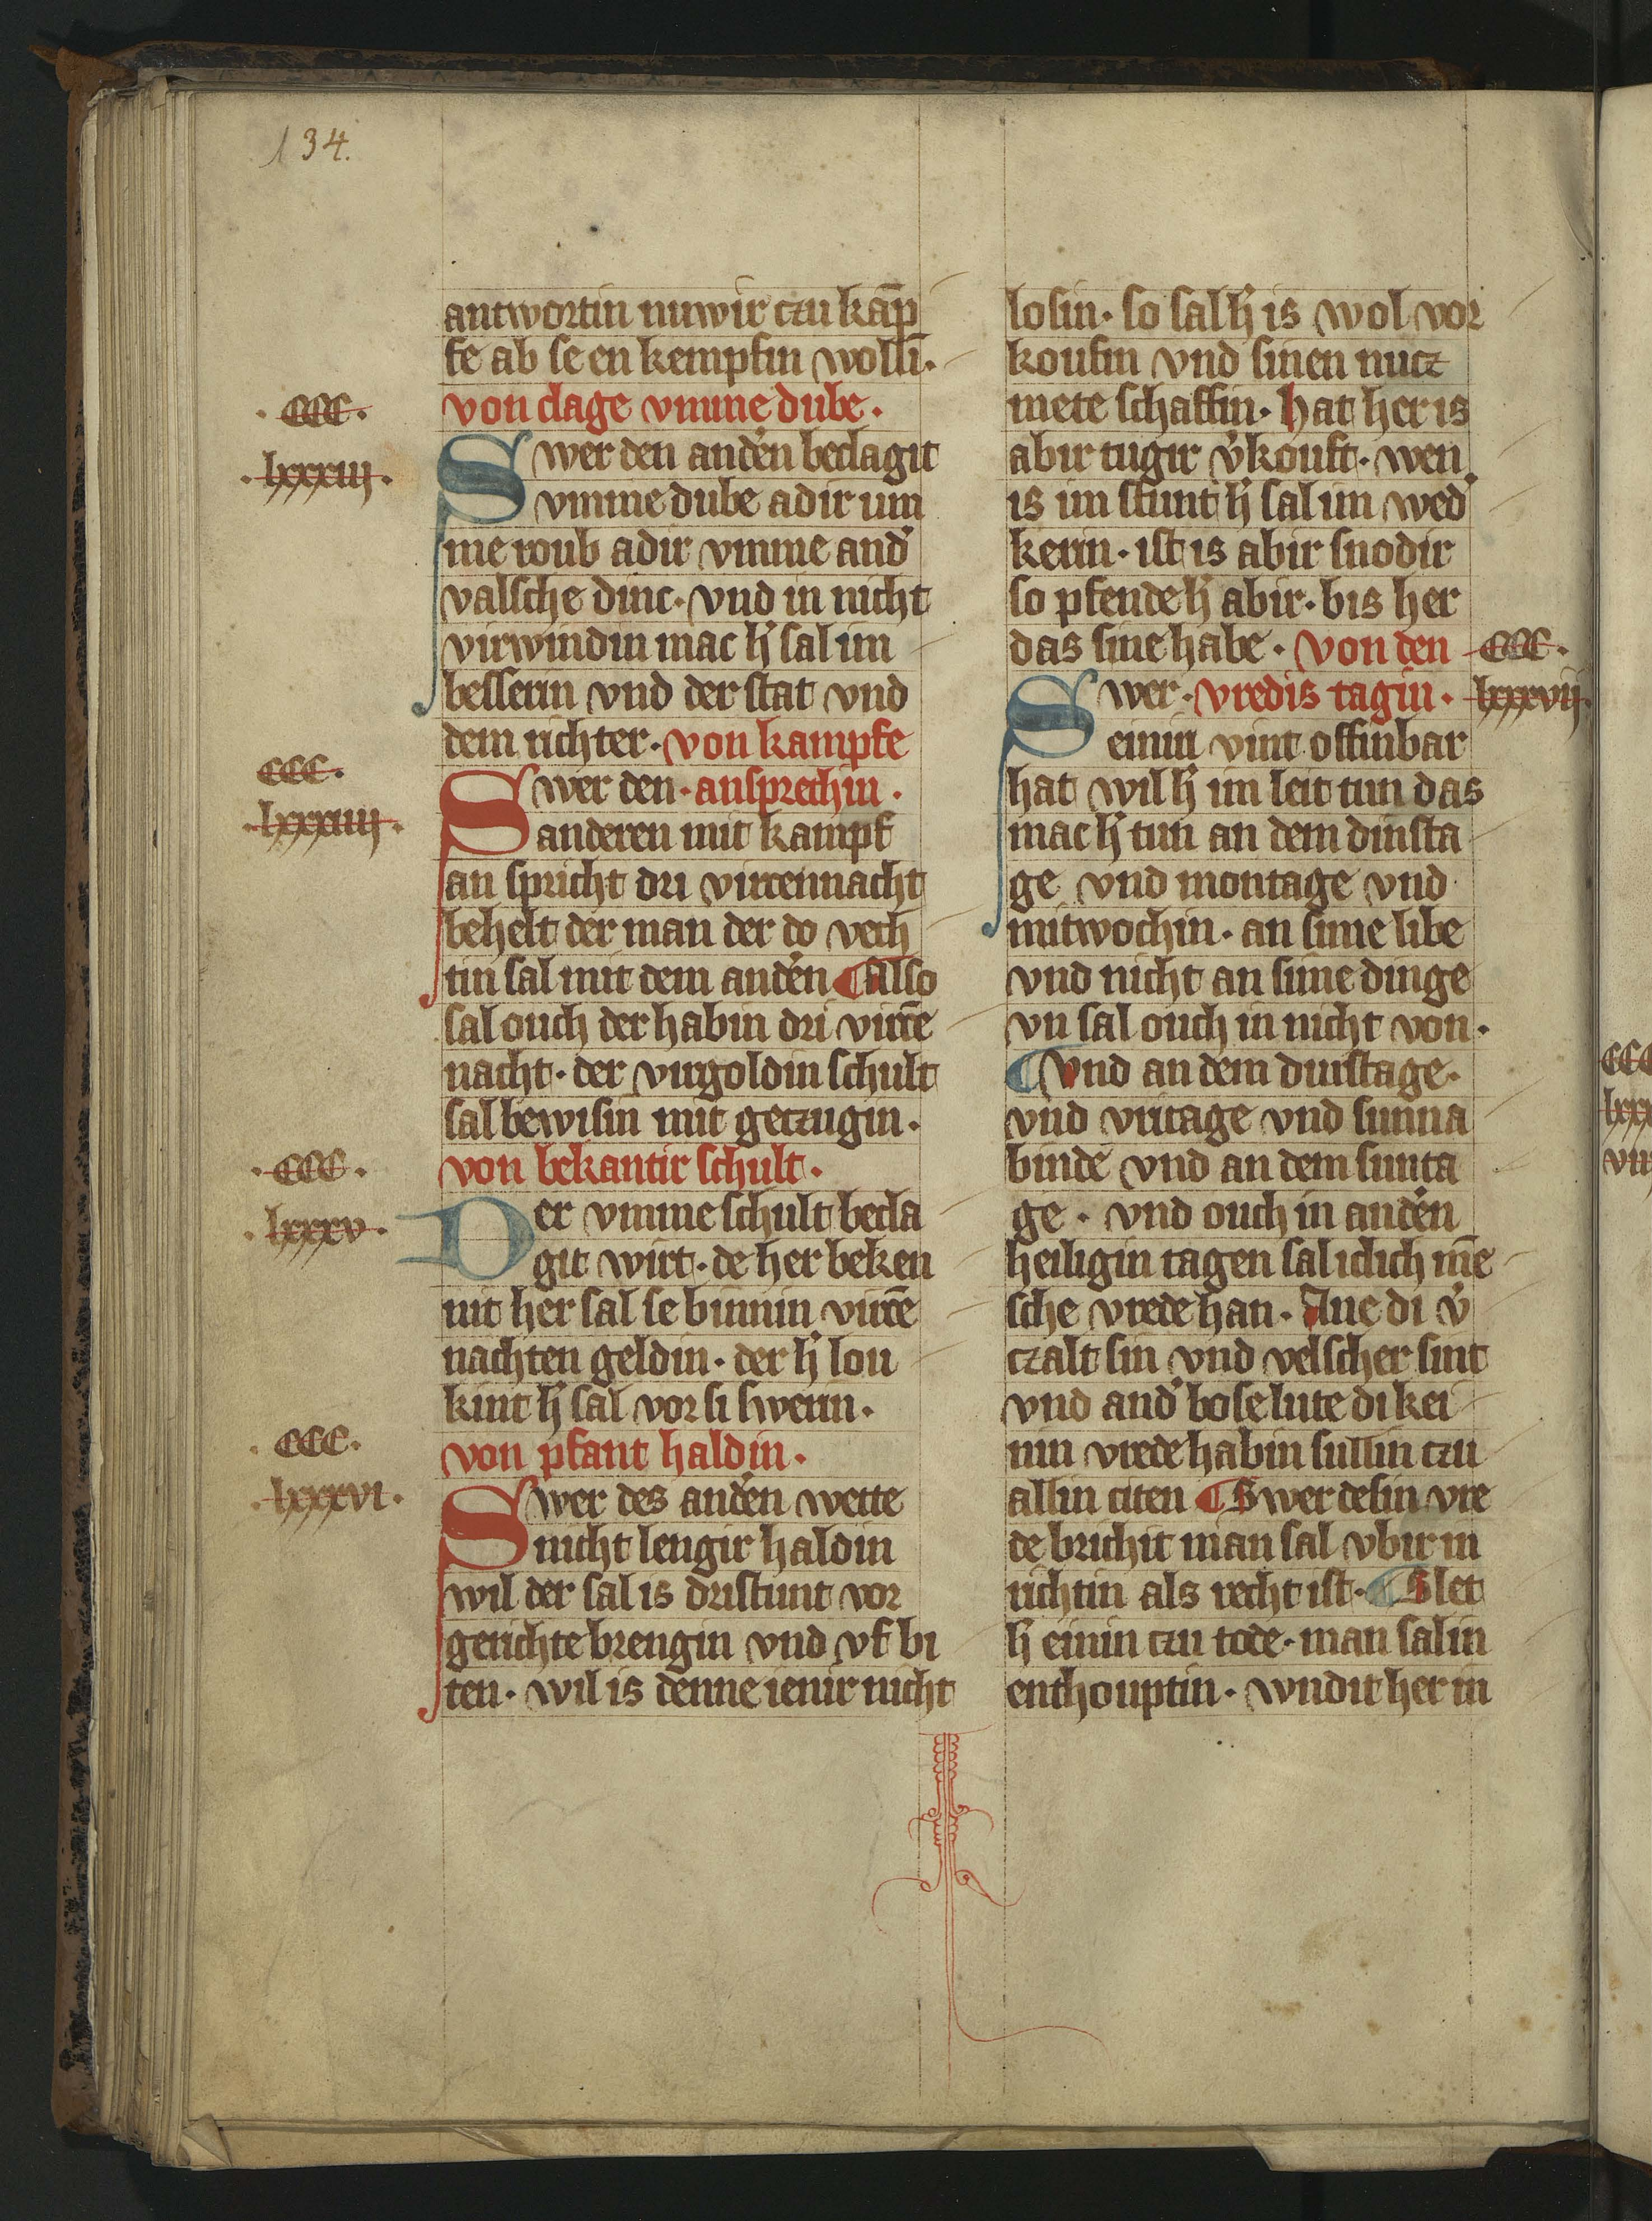 134.
antwortin nuwir czu kāp
fe ab se en kempfin wollī.
von clage vmme dube.
.ccc.
.lxxxiij.
Swer den and̓en beclagit
vmme dube adir um
me roub adir vmme and̓
valsche dinc. vnd in nicht
virwindin mac h̓ sal im
besserin vnd der stat vnd
dem richter. von kampfe
ccc.
.lxxxiiij.
Swer den. ansprechin.
anderen mit kampf
an spricht dri virtennacht
behelt der man der do vech
tin sal mit dem and̓en ¶ Also
sal ouch der habin dri virtē
nacht. der virgoldin schult
sal bewisin mit getzugin.
.ccc.
.lxxxv.
von bekantir schult.
Der vmme schult becla
git wirt. de her beken
nit her sal se binnin virtē
nachten geldin. der h̓ lou
kint h̓ sal vor si swerin.
.ccc.
.lxxxvi.
von pfant haldin.
Swer des and̓en wette
nicht lengir haldin
wil der sal is dristunt vor
gerichte brengin vnd vf bi
ten. wil is denne ienir nicht
losin. so sal h̓ is wol vor
koufin vnd sinen nutz
mete schaffin. hat her is
abir tugir v̓kouft. wen
is im stunt h̓ sal im wed̓
kerin. ist is abir snodir
so pfende h̓ abir. bis her
das sine habe. von den
ccc.
lxxxvij.
Swer. vredis tagin.
einin vint offinbar
hat wil h̓ im leit tun das
mac h̓ tun an dem dinsta
ge vnd montage vnd
mitwochin. an sime libe
vnd nicht an sime dinge
vn sal ouch in nicht von.
¶ Vnd an dem durstage.
vnd vritage vnd sunna
binde vnd an dem sunta
ge. vnd ouch in and̓en
heiligin tagen sal iclich mē
sche vrede han. Ane di v̓
czalt sin vnd velscher sint
vnd and̓ bose lute di kei
nin vrede habin sullin czu
allin citen ¶ Swer desin vre
de brichit man sal vbir in
richtin als recht ist. ¶ Slet
h̓ einin czu tode. man sal in
enthouptin. wndit her in